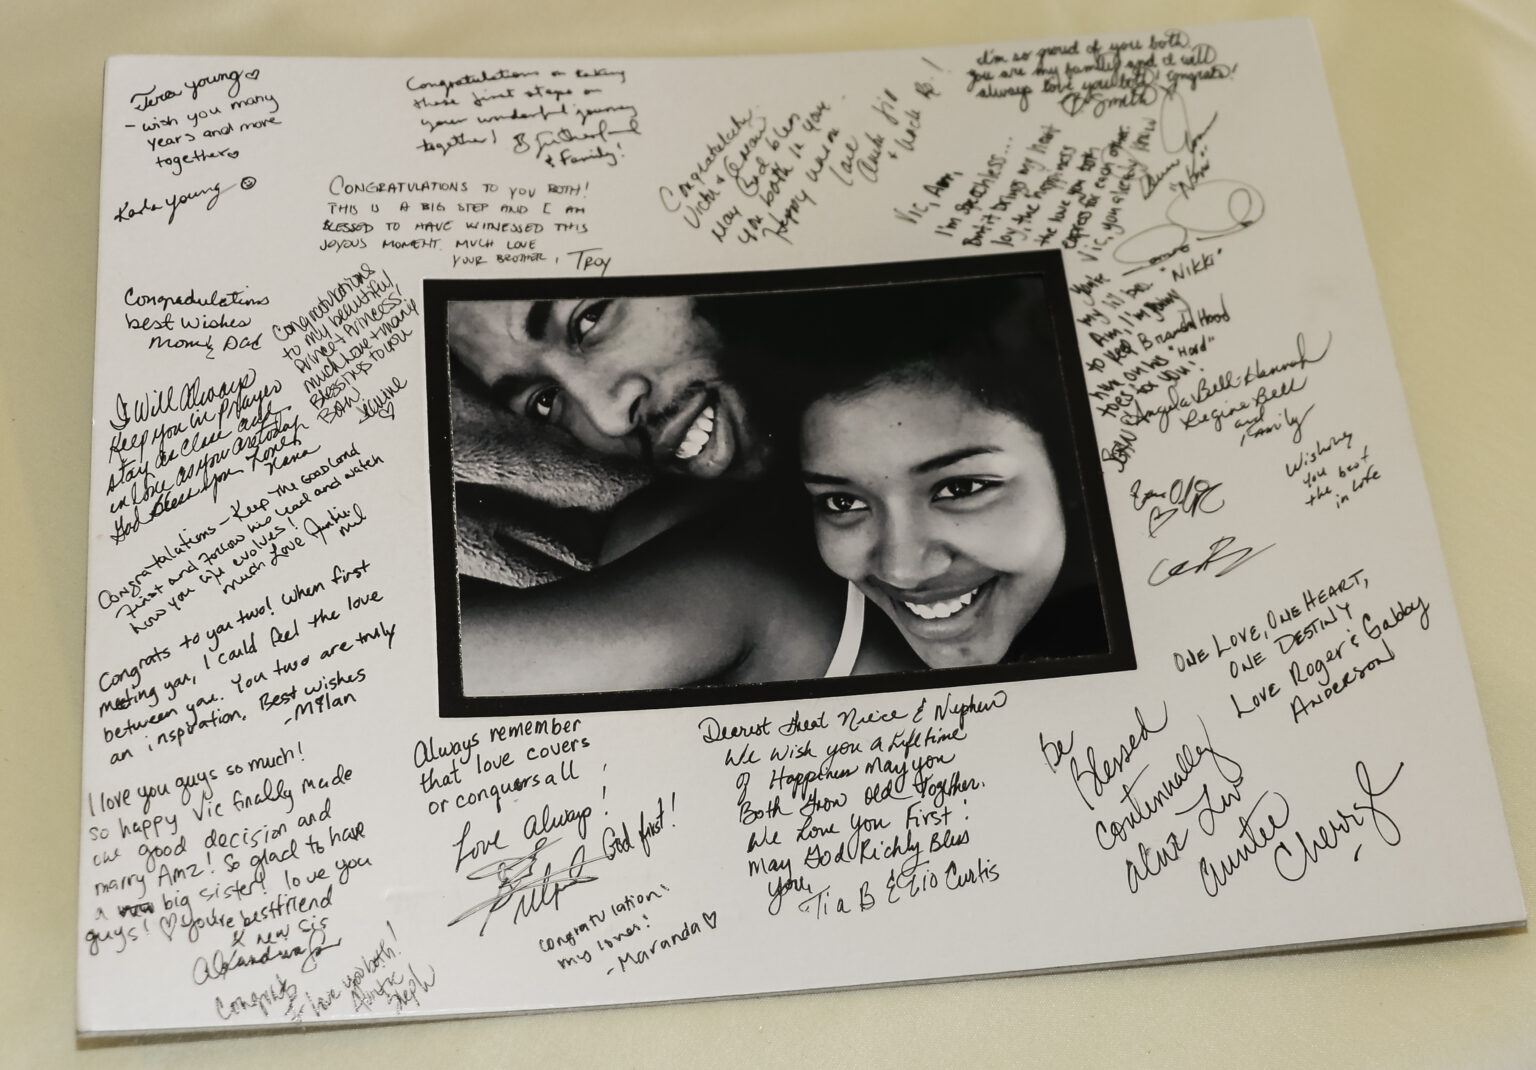 Tera Young ♡
- wish you many
years and more
together ♡
Karla Young ☺
Congratulations on taking
these first steps on
your wonderful journey
together! B Rutherford
& Family!
CONGRATULATIONS TO YOU BOTH!
THIS IS A BIG STEP AND I AM
BLESSED TO HAVE WITNESSED THIS
JOYOUS MOMENT. MUCH LOVE
YOUR BROTHER, TROY
Congratulations
May God bless
you both in your
Happy union
love
I'm so proud of you both
you are my family and I will
always love you both! Congrats!
Smith
Vic, Am,
I'm speechless...
But it brings my heart
joy, the happiness
the love you both
express for each other.
Vic, you already know
you're
my lil' bo. "Nikki"
Am, I'm going
to need Brandi Hood
have on his "Hood"
toes, too luv!
Angela Bell-Hannah
Regine Bell
and
family
Wishing
you
the best
in love
Congradulations
best wishes
Mom & Dad
Congratulations
to my beautiful
Prince & Princess,
much love & many
Blessings to you
Both
I Will Always
Keep you in Prayer
stay as close and
in love as you are today
God Bless you Love,
Nana
Congratulations - Keep the Good Lord
First and follow his lead and watch
how your life evolves!
Much Love Auntie
Congrats to you two! When first
meeting you, I could feel the love
between you. You two are truly
an inspiration. Best wishes
-Milan
I love you guys so much!
so happy Vic finally made
one good decision and
marry Amz! So glad to have
a big sister! love you
guys! ♡ You're bestfriend
& new sis
Alexandria
Congrats
I love you both!
Auntie
Steph
Always remember
that love covers
or conquers all
Love Always!
God first!
congratulation!
my loves!
-Maranda ♡
Dearest Great Niece & Nephew
We wish you a Lifetime
of Happiness May you
Both Grow Old Together.
We Love You First!
May God Richly Bless
you,
Tia B & Tio Curtis
ONE LOVE, ONE HEART,
ONE DESTINY
LOVE ROGER & Gabby
ANDERSON
Be
Blessed
Continually
Auntee